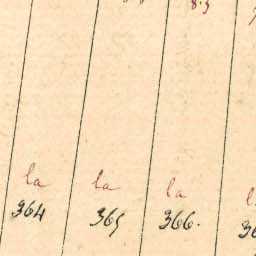 8.5
la la la
364 365 366.